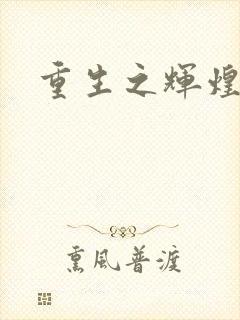 重生之輝煌
熏風普渡